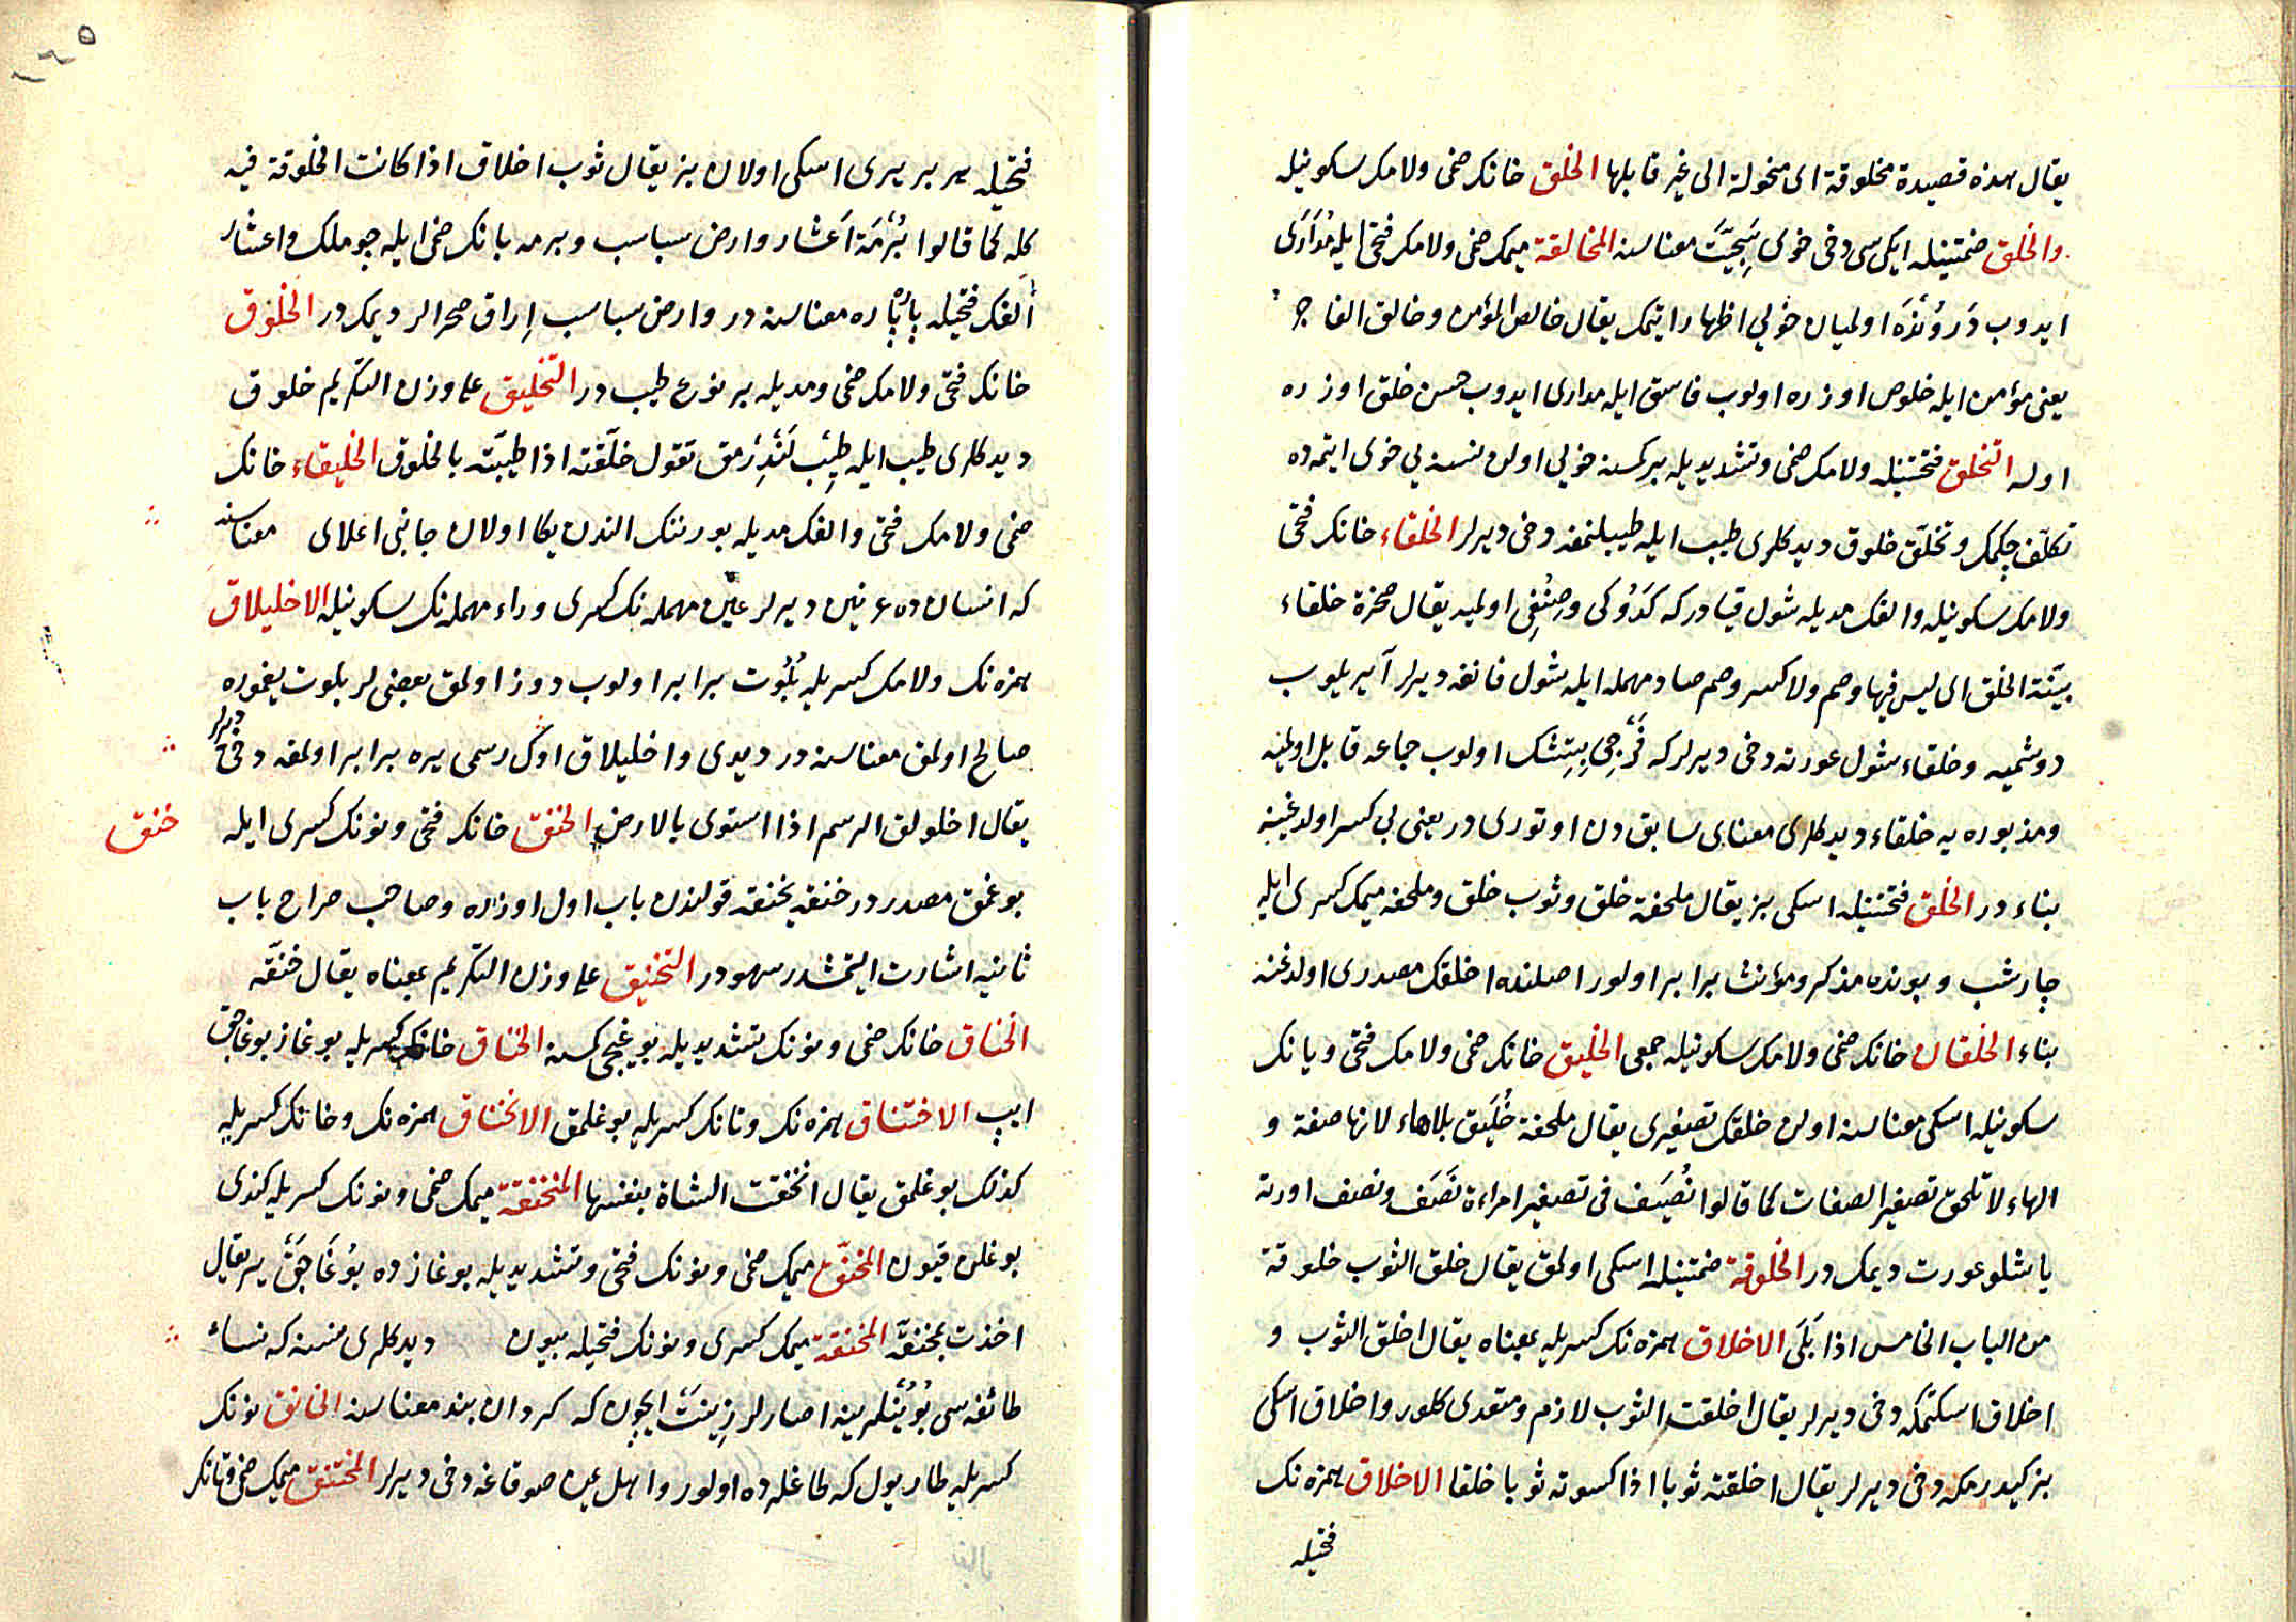 يقال هذه قصيدة مخلوقة اى منحولة الى غير قابلها الخلق خانك ضمى ولامك سكونيله
والخلق ضمتينله ايكى سى دخى خوى سَجِيَّت معناسنه المخالقة ميمك ضمى ولامك فتحى ايله مُدَارَى
ايدوب دَروُنْدَه اولميان خولي اظهار ايتمك يقال خالص المؤمن وخالق الفاجر
يعنى مؤمن ايله خلوص اوزره اولوب فاسق ايله مدارى ايدوب حسن خلق اوزره
اوله التخلق فتحتينله ولامك ضمى وتشديديله بر كمسنه خويي اولن نسنه يي خوى ايتمه ده
تكلّف چكمك وتخلّق خلوق ديدكلرى طيب ايله طيبلنمغه دخى ديرلر الخلقاء خانك فتحى
ولامك سكونيله والفك مديله شول قيادر كه كَدُوكى ورِصْنُغِى اولميه يقال صخرة خلقاء
بيّنة الخلق اى ليس فيها وصم ولا كسر وصم صاد مهمله ايله شول قانغه ديرلر آيريلوب
دوشميه وخلقاء شول عورته دخى ديرلر كه فَرْجِى بِتِشك اولوب جماعه قابل اولميه
ومذبوره يه خلقاء ديدكلرى معناى سابق دن اوتورى در يعنى بى كسر اولدغينه
بناء در الخلق فتحتينله اسكى بز يقال ملحفة خلق وثوب خلق وملحفه ميمك كسرى ايله
چارشب وبونده مذكر ومؤنث برابر اولور اصلنده اخلقك مصدرى اولدغنه
بناء الخلقان خانك ضمى ولامك سكونيله جمعى الخليق خانك ضمى ولامك فتحى ويانك
سكونيله اسكى معناسنه اولن خلقك تصغيرى يقال ملحفة خُلَيق بلاهاء لانها صفة و
الهاء لا تلحق تصغير الصفات كما قالوا نُصَيف فى تصغير امراءة نَصَف ونصف اورته
ياشلو عورت ديمك در الخلوقة ضمتينله اسكى اولمق يقال خلق الثوب خلوقة
من الباب الخامس اذا بَلَى الاخلاق همزه نك كسريله بمعناه يقال اخلق الثوب و
اخلاق اسكتمكه دخى ديرلر يقال اخلقت الثوب لازم ومتعدى كلور واخلاق اسكى
بز كيدرمكه دخى ديرلر يقال اخلقته ثوبا اذا كسوته ثوبا خلقا الاخلاق همزه نك
فتحيله
فتحيله ير بر يرى اسكى اولان بز يقال ثوب اخلاق اذا كانت الخلوقة فيه
كله كما قالوا بُرْمَة اَعْشار وارض سباسب وبرمه بانك ضمى ايله چوملك واعشار
اَلفك فتحيله پارْپاره معناسنه در وارض سباسب اِراق صحرالر ديمك در الخلوق
خانك فتحى ولامك ضمى ومديله بر نوع طيب در التخليق على وزن التكريم خلوق
ديدكلرى طيب ايله طِيْب لَنْدِرْمق تقول خلّقته اذا طيبّته بالخلوق الخليقاء خانك
ضمى ولامك فتحى والفك مديله بورننك الندن يكا اولان جانبى اعلاى معناسنه
كه انسان ده عرنين ديرلر عين مهمله نك كسرى وراء مهمله نك سكونيله الاخليلاق
همزه نك ولامك كسريله بُلُوت برابر اولوب دوز اولمق بعضى لر بلوت يغموره
صالح اولمق معناسنه در ديدى واخليلاق اوك رسمى يره برابر اولمغه دخى ديرلر
يقال اخلولق الرسم اذا استوى بالارض الخنق خانك فتحى ونونك كسرى ايله
خنق
بوغمق مصدر در خنقه يخنقه قولندن باب اول اوزره وصاحب صراح باب
ثانيه اشارت ايتمشدر سهو در التخنيق على وزن التكريم بمعناه يقال خنقّه
الخناق خانك ضمى ونونك تشديديله بوغيجى كسنه الخناق خانك كسريله بوغاز بوغاجق
ايپ الاختناق همزه نك وتانك كسريله بوغلمق الانخناق همزه نك وخانك كسريله
كذلك بوغلمق يقال انخنقت الشاة بنفسها المنخنقة ميمك ضمى ونونك كسريله كندى
بوغلن قيون المخنّق ميمك ضمى ونونك فتحى وتشديديله بوغازده بُوغَاجَق ير يقال
اخذت بمخنقّه المخنقة ميمك كسرى ونونك فتحيله بيون ديدكلرى نسنه كه نساء
طائفه سى بُوُيْنلرينه اصارلر زِينَتْ ايچون كه كردان بند معناسنه الخانق نونك
كسريله طار يول كه طاغلرده اولور واهل يمن صوقاغه دخى ديرلر المختنق ميمك ضمى وتانك